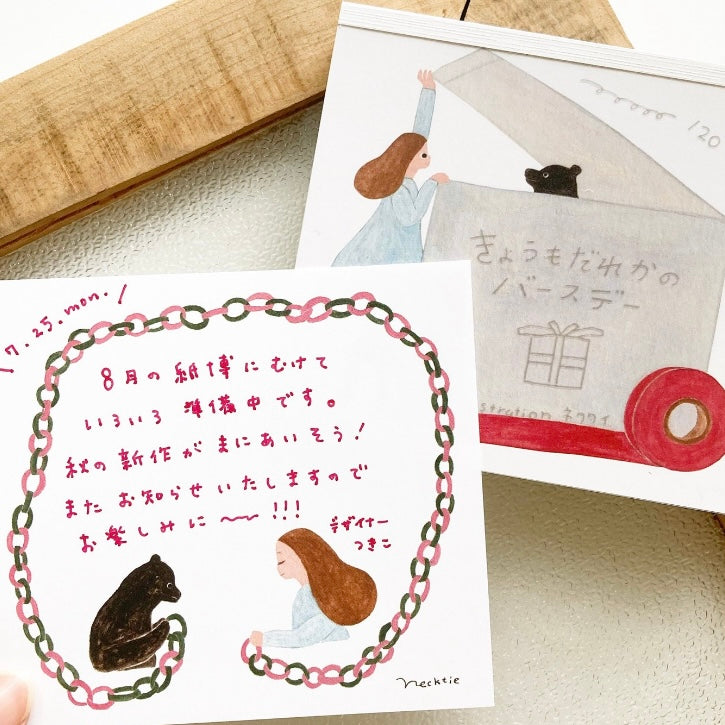 120
きょうもだれかの
バースデー
stration ネクタイ
7.25.mon.
8月の紙博にむけて
いろいろ 準備中です。
秋の新作がまにあいそう!
またお知らせいたしますので
お楽しみに〜!!!
デザイナー
つきこ
necktie